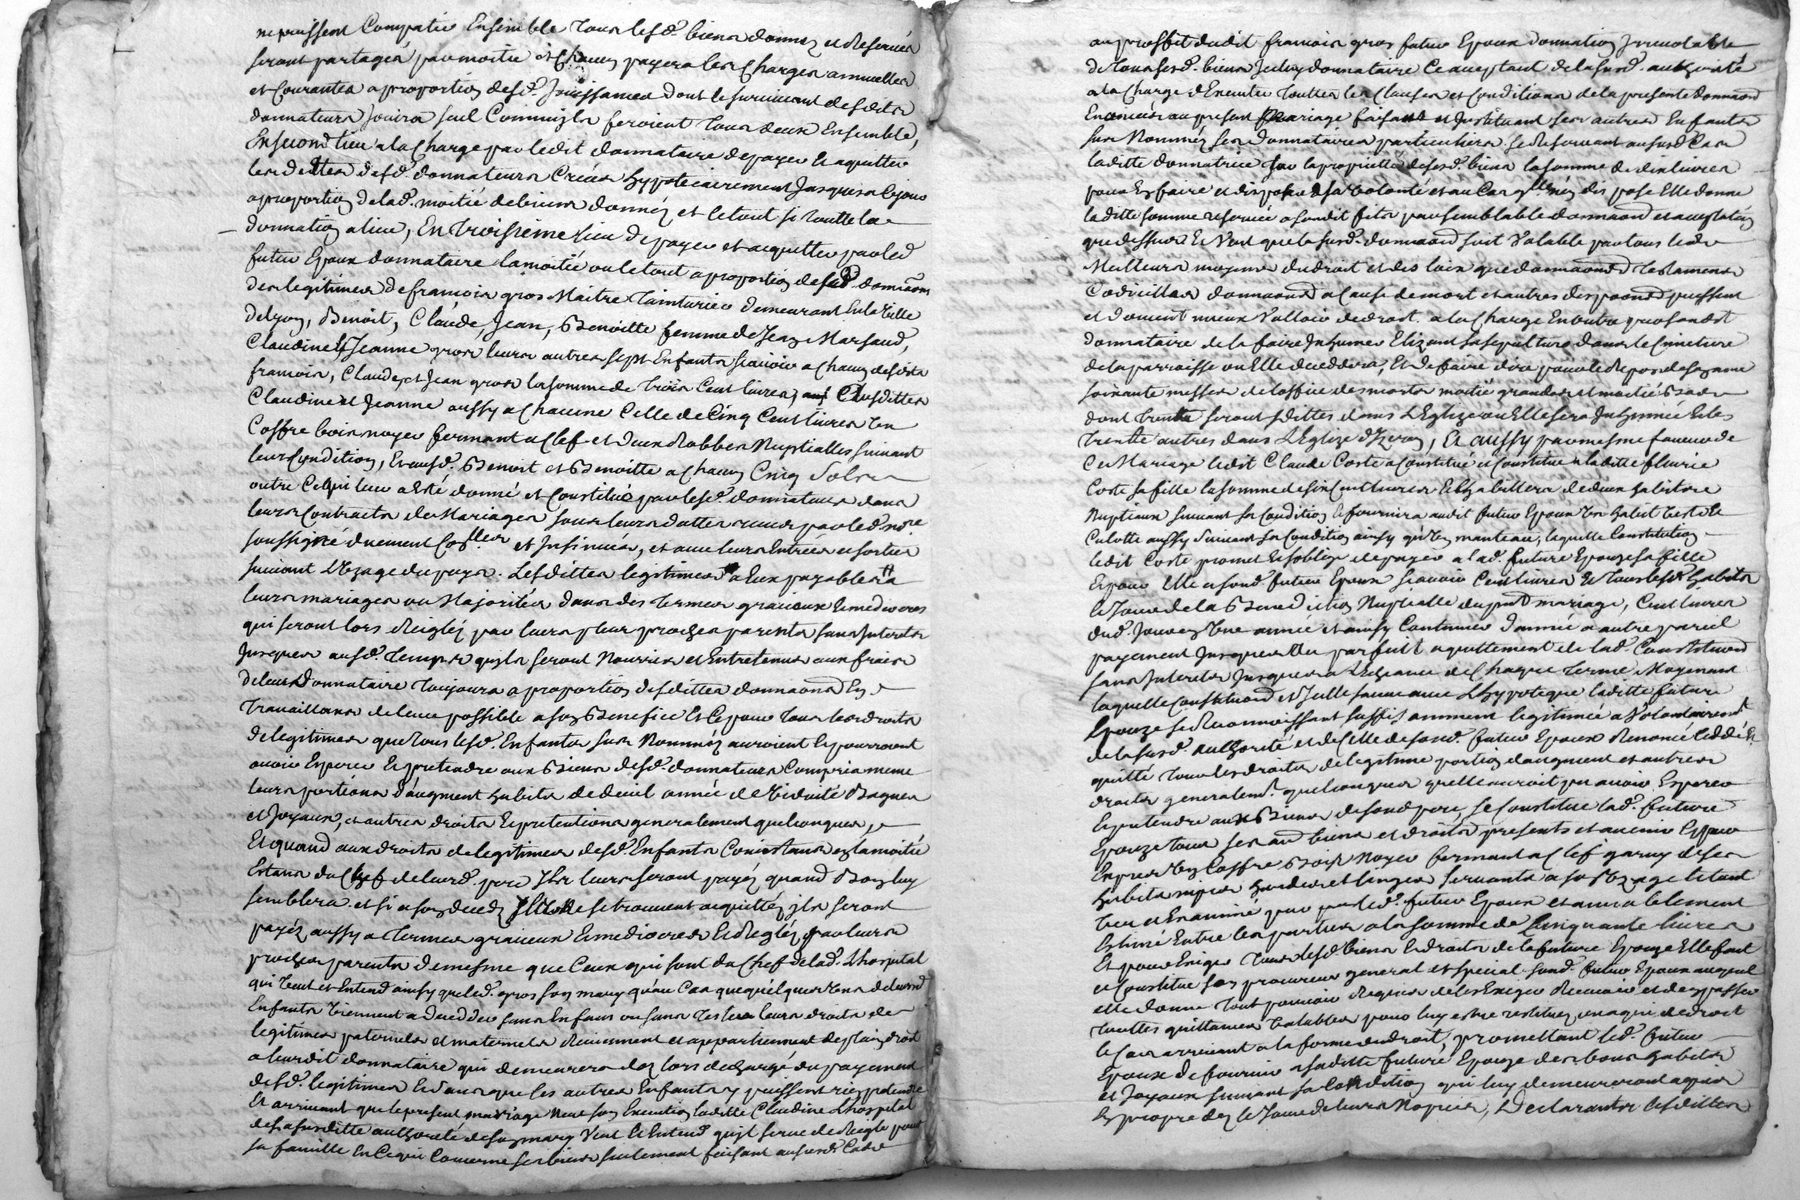 ne pussent Compatir Ensemble tous lesd. biens donnez et Reservés
seront partagés par moitié et Chacun payera les Charges annuelles
et Courantes a proportion desd. Jouissances dont le survivant desdits
donnateurs Jouira seul Comm'ils feroient tous deux Ensemble,
En second lieu a la Charge par ledit donnataire de payer et aquitter
les dettes desd. donnateurs Créées hypotecairement Jusques a ce jour
a proportion de lad. moitié de biens donnéz et le tout si toutte la
donnation a lieu, En troisieme lieu de payer et acquitter par led
futur Epoux donnataire la moitié ou le tout a proportion desd. donnaons
des legitimes de francois gros Maitre tainturier demeurant En la Ville
de lyon, Benoit, Claude, Jean, Benoitte femme de Jean Marsaud,
Claudine & Jeanne gros leurs autres sept Enfants scavoir a Chacun desdits
francois, Claude, et Jean gros la somme de trois Cent livres, Esdittes
Claudine et Jeanne aussy a Chacune Celle de Cinq Cent livres Un
Coffre bois noyer fermant a Clef et deux Robbes Nuptialles suivant
leur Condition, Et ausd. Benoit et Benoitte a Chacun Cinq Sols
outre Ce qui leur a Esté donné et Constitué par lesd. donnateurs dans
leurs Contracts de Mariages sous leurs dattes receus par led. nore
soussigné duement Collés et Insinués, et avec leurs Entrées et sorties
suivant L'Uzage du pays. Lesdittes legitimes a Eux payables a
leurs mariages ou Majorités dans des termes gracieux & mediocres
qui seront lors Reiglés par leurs plus proches parents sans Interets
Jusques ausd. temps qu'ils seront Nourris et Entretenus aux frais
de leurd donnataire toujours a proportion desdittes donnaons En
travaillans de leur possible a son Benefice Et Ce pour tous les droits
de legitimes que tous lesd. Enfants sus Nommés auroient & pourroient
avoir Esperer & pretendre aux Biens desd. donnateurs Compris meme
leurs portions d'augment habits de deuil année de Viduité Bagues
et Joyaux, et autres droits & pretentions generalement quelconques,
Et quand aux droits de legitimes desd. Enfants Consistans en la moitié
Estans du Chef de leurd. pere Ils leurs seront payéz quand Bon luy
semblera et si a son deced Ils ne se trouvent acquittéz ils seront
payéz aussy a termes gracieux & mediocres & Regléz par leurs
proches parents de mesme que Ceux qui sont du Chef de lad. Lhospital
qui Veut et Entend ainsy que led. gros son mary qu'au Cas que quelques Uns de leursd
Enfants Viennent a deceder sans Enfans ou sans tester leurs droits de
legitimes paternels et maternels Reviennent et appartiennent de plain droit
a leurdit donnataire qui demeurera dez lors dechargé du payement
desd. legitimes Et sans que les autres Enfants y puissent rien pretendre
Et arrivant que le present mariage Veut son Execution laditte Claudine Lhospital
de la susditte authorité de son mary Veut & Entend qu'il serve de Reigle pour
sa famille En Ce qui Concerne ses biens seulement faisant ausurd. Cas
au proffit dudit francois gros futur Epoux donnation Irrevocable
de tous sesd. biens Iceluy donnataire Ce acceptant de la susd. authorité
a la Charge d'Executer touttes les Clauses et Conditions de la presente donnaon
Enoncées au present Mariage faisant et Instituant ses autres Enfants
sus Nommés ses donnataires particuliers se Reservant ausurd Cas
laditte donnatrice sur la proprietté desesd. biens la somme de dix livres
pour En faire et disposer a sa Volonté et au Cas qu'elle n'en dispose Elle donne
laditte somme reservée a sondit fils par semblable donnaon et acceptation
que dessus Et Veut que la susd. donnaon soit Valable par tous les
Meilleurs moyens du droit et des loix que donnaons testamens
Codicilles donnaons a Cause de mort et autres dispositions puissent
et doivent mieux Valloir de droit, a la Charge En outre par sondit
donnataire de la faire Inhumer Elizant sa sepulture dans le Cimetiere
de la parroisse ou Elle decedera, Et de faire dire pour le Repos de son ame
soixante messes de l'office des morts moitié grandes et moitié Basses
dont trente seront dittes dans L'Eglize ou Elle sera Inhumée Et les
trente autres dans L'Eglize d'Izeron, Et aussy par mesme faveur de
Ce Mariage ledit Claude Coste a Constitué et Constitue a laditte fleurie
Coste sa fille la somme de six Cent livres Et habilles de deux habits
Nuptiaux suivant sa Condition Et fournira audit futur Epoux Un habit Veste &
Culotte aussy suivant sa Condition ainsy qu'un manteau, laquelle Constitution
ledit Coste promet Et s'oblige de payer a lad. future Epouze sa fille
Et pour Elle a sond. futur Epoux scavoir Cent livres Et tous lesd. habits
le Jour de la Benediction Nuptialle du pnt mariage, Cent livres
dud. Jour en Une année et ainsy Continuer d'année a autre pareil
payement Jusques au parfait aquittement de lad. Constitution
sans Interets Jusques a L'Echeance de Chaque terme Moyenant
laquelle Constitution et Icelle sauve avec L'hypoteque laditte future
Epouze se Reconnoissant suffisamment legitimée a Volontairemt
de la susd. authorité et de Celle de sond. futur Epoux Renoncé Cedé &
quitté tous les droits de legitime portion d'augment et autres
droits generalemt. quelconques quelle auroit pu avoir Esperer
Et pretendre aux Biens de sond. pere, se Constitue lad. future
Epouze tous ses autres biens et droits presents et avenir Et pour
Expres Un Coffre Bois Noyer fermant a Clef garny de ses
habits nipes hardes et linges servants a son Uzage le tout
Veu et Examiné par led. futur Epoux et amiablement
Estimé Entre les parties a la somme de Cinquante livres
Et pour Exiger tous lesd. biens & droits de la future Epouze Elle fait
et Constitue son procureur general et special sond. futur Epoux auquel
elle donne tout pouvoir Requis de les Exiger Recevoir et d'en passer
touttes quittances Valables pour luy estre restituez, en aqui de droit
le Cas arrivant a la forme du droit, promettant led. futur
Epoux de fournir a laditte future Epouze de ses bons habits
et Joyaux suivant sa Condition qui luy demeureront aquis
En propre dez le Jour de leurs Noces, Declarants lesdittes